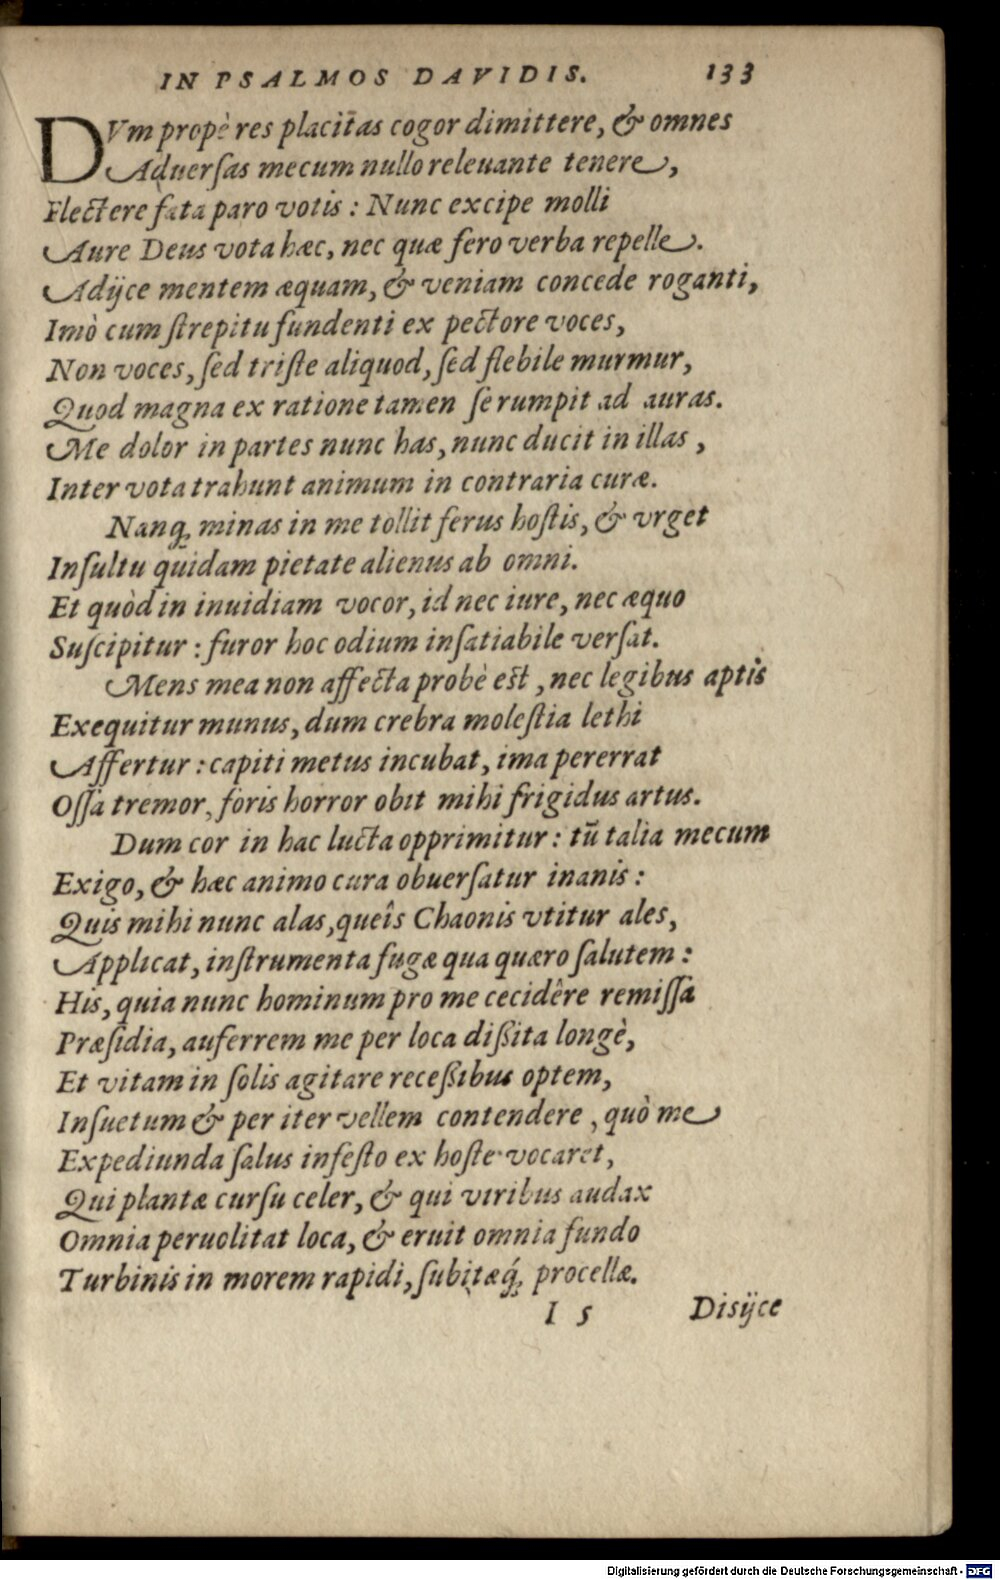 IN PSALMOS DAVIDIS. 133
DVm propè res placitas cogor dimittere, & omnes
Aduerſas mecum nullo releuante tenere,
Flectere fata paro votis : Nunc excipe molli
Aure Deus vota hæc, nec quæ fero verba repelle.
Adijce mentem æquam, & veniam concede roganti,
Imò cum ſtrepitu fundenti ex pectore voces,
Non voces, ſed triſte aliquod, ſed flebile murmur,
Quod magna ex ratione tamen ſe rumpit ad auras.
Me dolor in partes nunc has, nunc ducit in illas ,
Inter vota trahunt animum in contraria curæ.
Nanq; minas in me tollit ferus hoſtis, & vrget
Inſultu quidam pietate alienus ab omni.
Et quòd in inuidiam vocor, id nec iure, nec æquo
Suſcipitur : furor hoc odium inſatiabile verſat.
Mens mea non affecta probè eſt , nec legibus aptis
Exequitur munus, dum crebra moleſtia lethi
Affertur : capiti metus incubat, ima pererrat
Oſſa tremor, foris horror obit mihi frigidus artus.
Dum cor in hac lucta opprimitur : tū talia mecum
Exigo, & hæc animo cura obuerſatur inanis :
Quis mihi nunc alas, queîs Chaonis vtitur ales,
Applicat, inſtrumenta fugæ qua quæro ſalutem :
His, quia nunc hominum pro me cecidêre remiſſa
Præſidia, auferrem me per loca diſsita longè,
Et vitam in ſolis agitare receſsibus optem,
Inſuetum & per iter vellem contendere , quò me
Expediunda ſalus infeſto ex hoſte vocaret,
Qui plantæ curſu celer, & qui viribus audax
Omnia peruolitat loca, & eruit omnia fundo
Turbinis in morem rapidi, ſubitæq́; procellæ.
I 5 Disijce
Digitalisierung gefördert durch die Deutsche Forschungsgemeinschaft - DFG